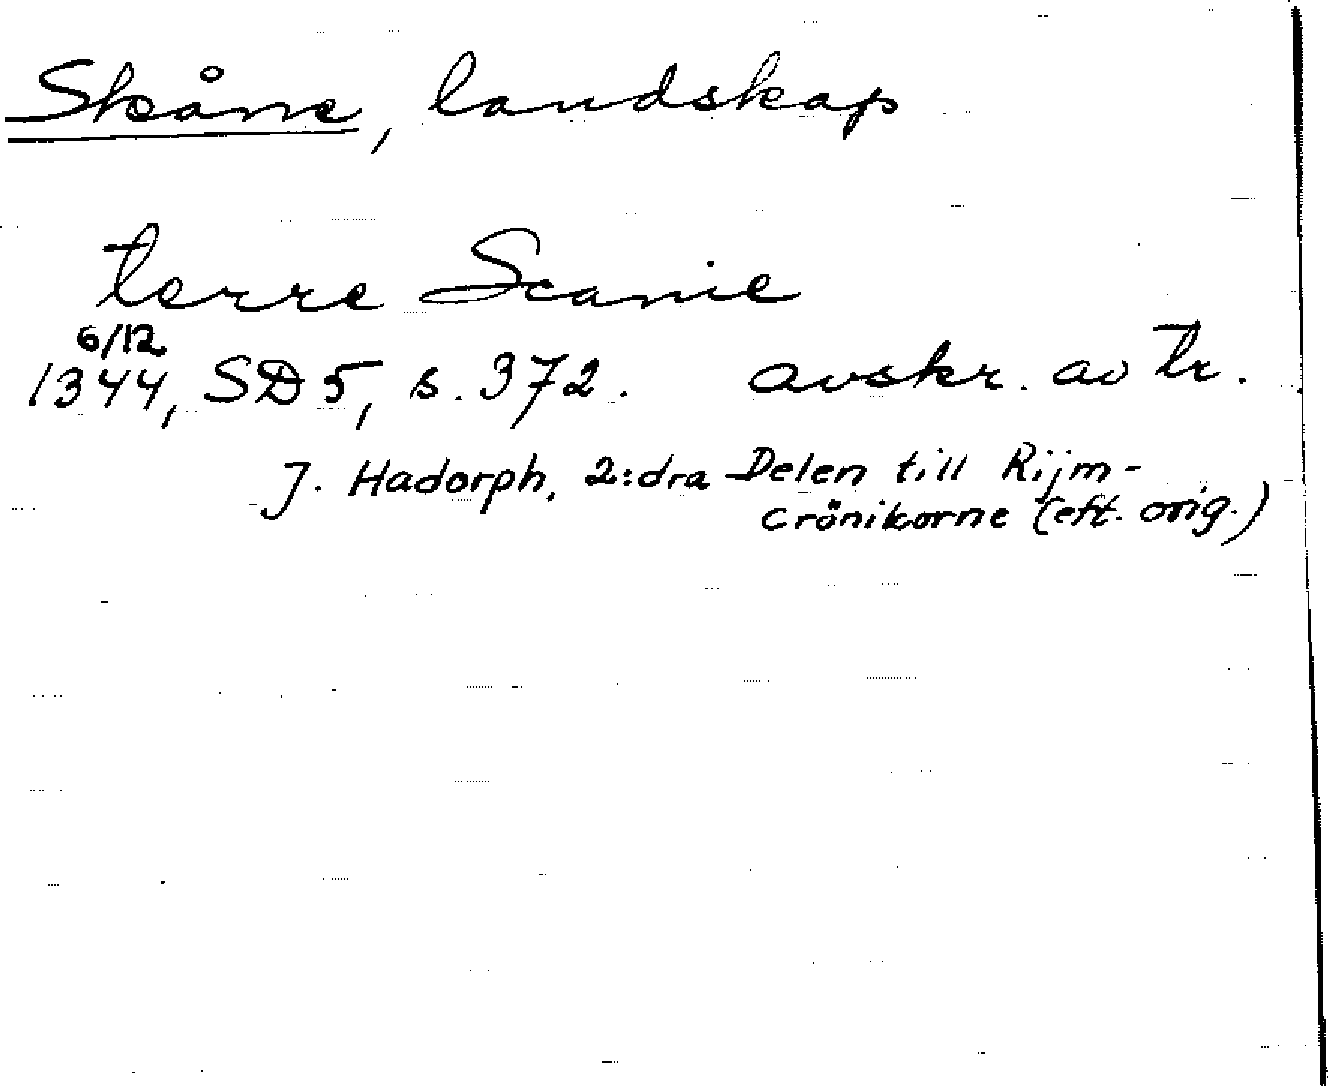 Skåne, landskap
terre Scanie
6/12
1344, SD 5, s. 372. avskr. av tr.
J. Hadorph, 2:dra Delen till Rijm-
crönikorne (eft. orig.)